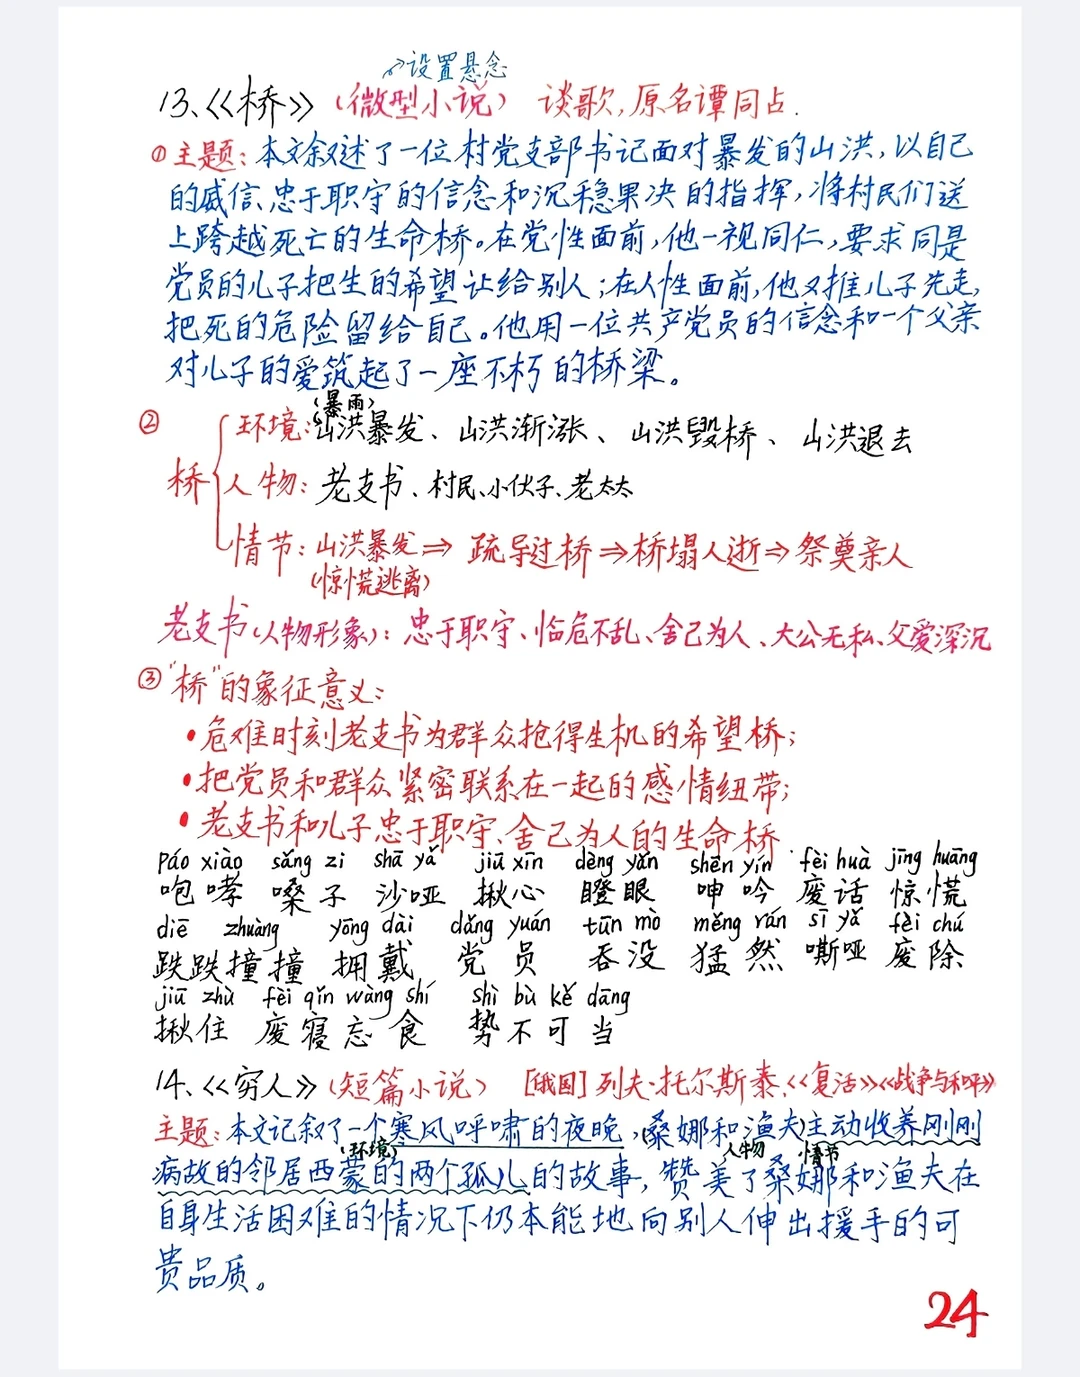 →设置悬念
13、《桥》(微型小说) 谈歌,原名谭同占.
①主题:本文叙述了一位村党支部书记面对暴发的山洪,以自己
的威信、忠于职守的信念和沉稳果决的指挥,将村民们送
上跨越死亡的生命桥。在党性面前,他一视同仁,要求同是
党员的儿子把生的希望让给别人;在人性面前,他又推儿子先走,
把死的危险留给自己。他用一位共产党员的信念和一个父亲
对儿子的爱筑起了一座不朽的桥梁。
(暴雨)
② 环境:山洪暴发、山洪渐涨、山洪毁桥、山洪退去
桥 人物:老支书、村民、小伙子、老太太
情节:山洪暴发⇒疏导过桥⇒桥塌人逝⇒祭奠亲人
(惊慌逃离)
老支书(人物形象):忠于职守、临危不乱、舍己为人、大公无私、父爱深沉
③"桥"的象征意义:
•危难时刻老支书为群众抢得生机的希望桥;
•把党员和群众紧密联系在一起的感情纽带;
•老支书和儿子忠于职守、舍己为人的生命桥.
páo xiào sǎng zi shā yǎ jiū xīn dèng yǎn shēn yín fèi huà jīng huāng
咆哮 嗓子 沙哑 揪心 瞪眼 呻吟 废话 惊慌
diē zhuàng yōng dài dǎng yuán tūn mò měng rán sī yǎ fèi chú
跌跌撞撞 拥戴 党员 吞没 猛然 嘶哑 废除
jiū zhù fèi qǐn wàng shí shì bù kě dāng
揪住 废寝忘食 势不可当
14、《穷人》(短篇小说) [俄国]列夫·托尔斯泰,《复活》《战争与和平》
主题:本文记叙了一个寒风呼啸的夜晚,桑娜和渔夫主动收养刚刚
(环境) 人物 情节
病故的邻居西蒙的两个孤儿的故事,赞美了桑娜和渔夫在
自身生活困难的情况下仍本能地向别人伸出援手的可
贵品质。
24